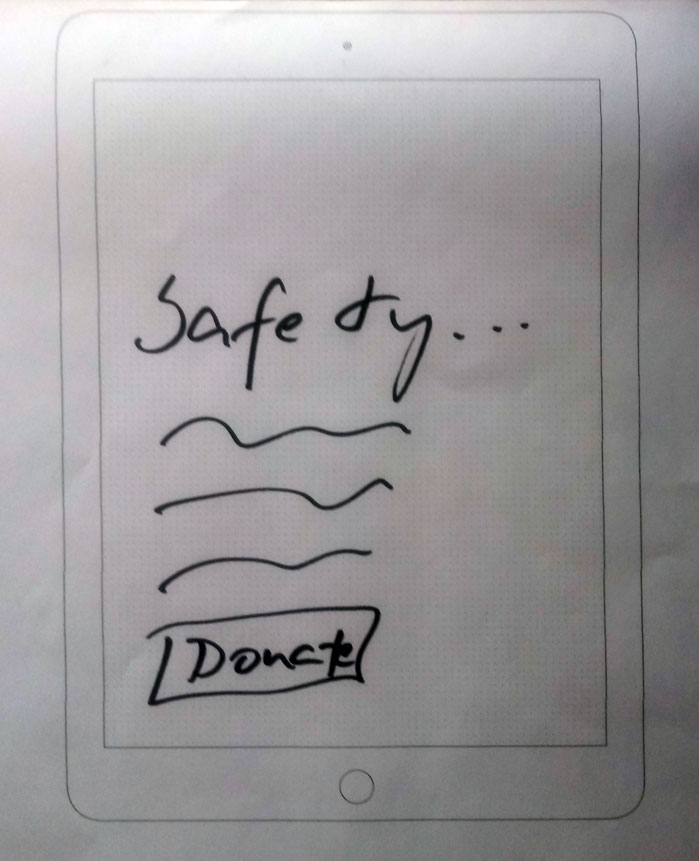 Safety...
Donate